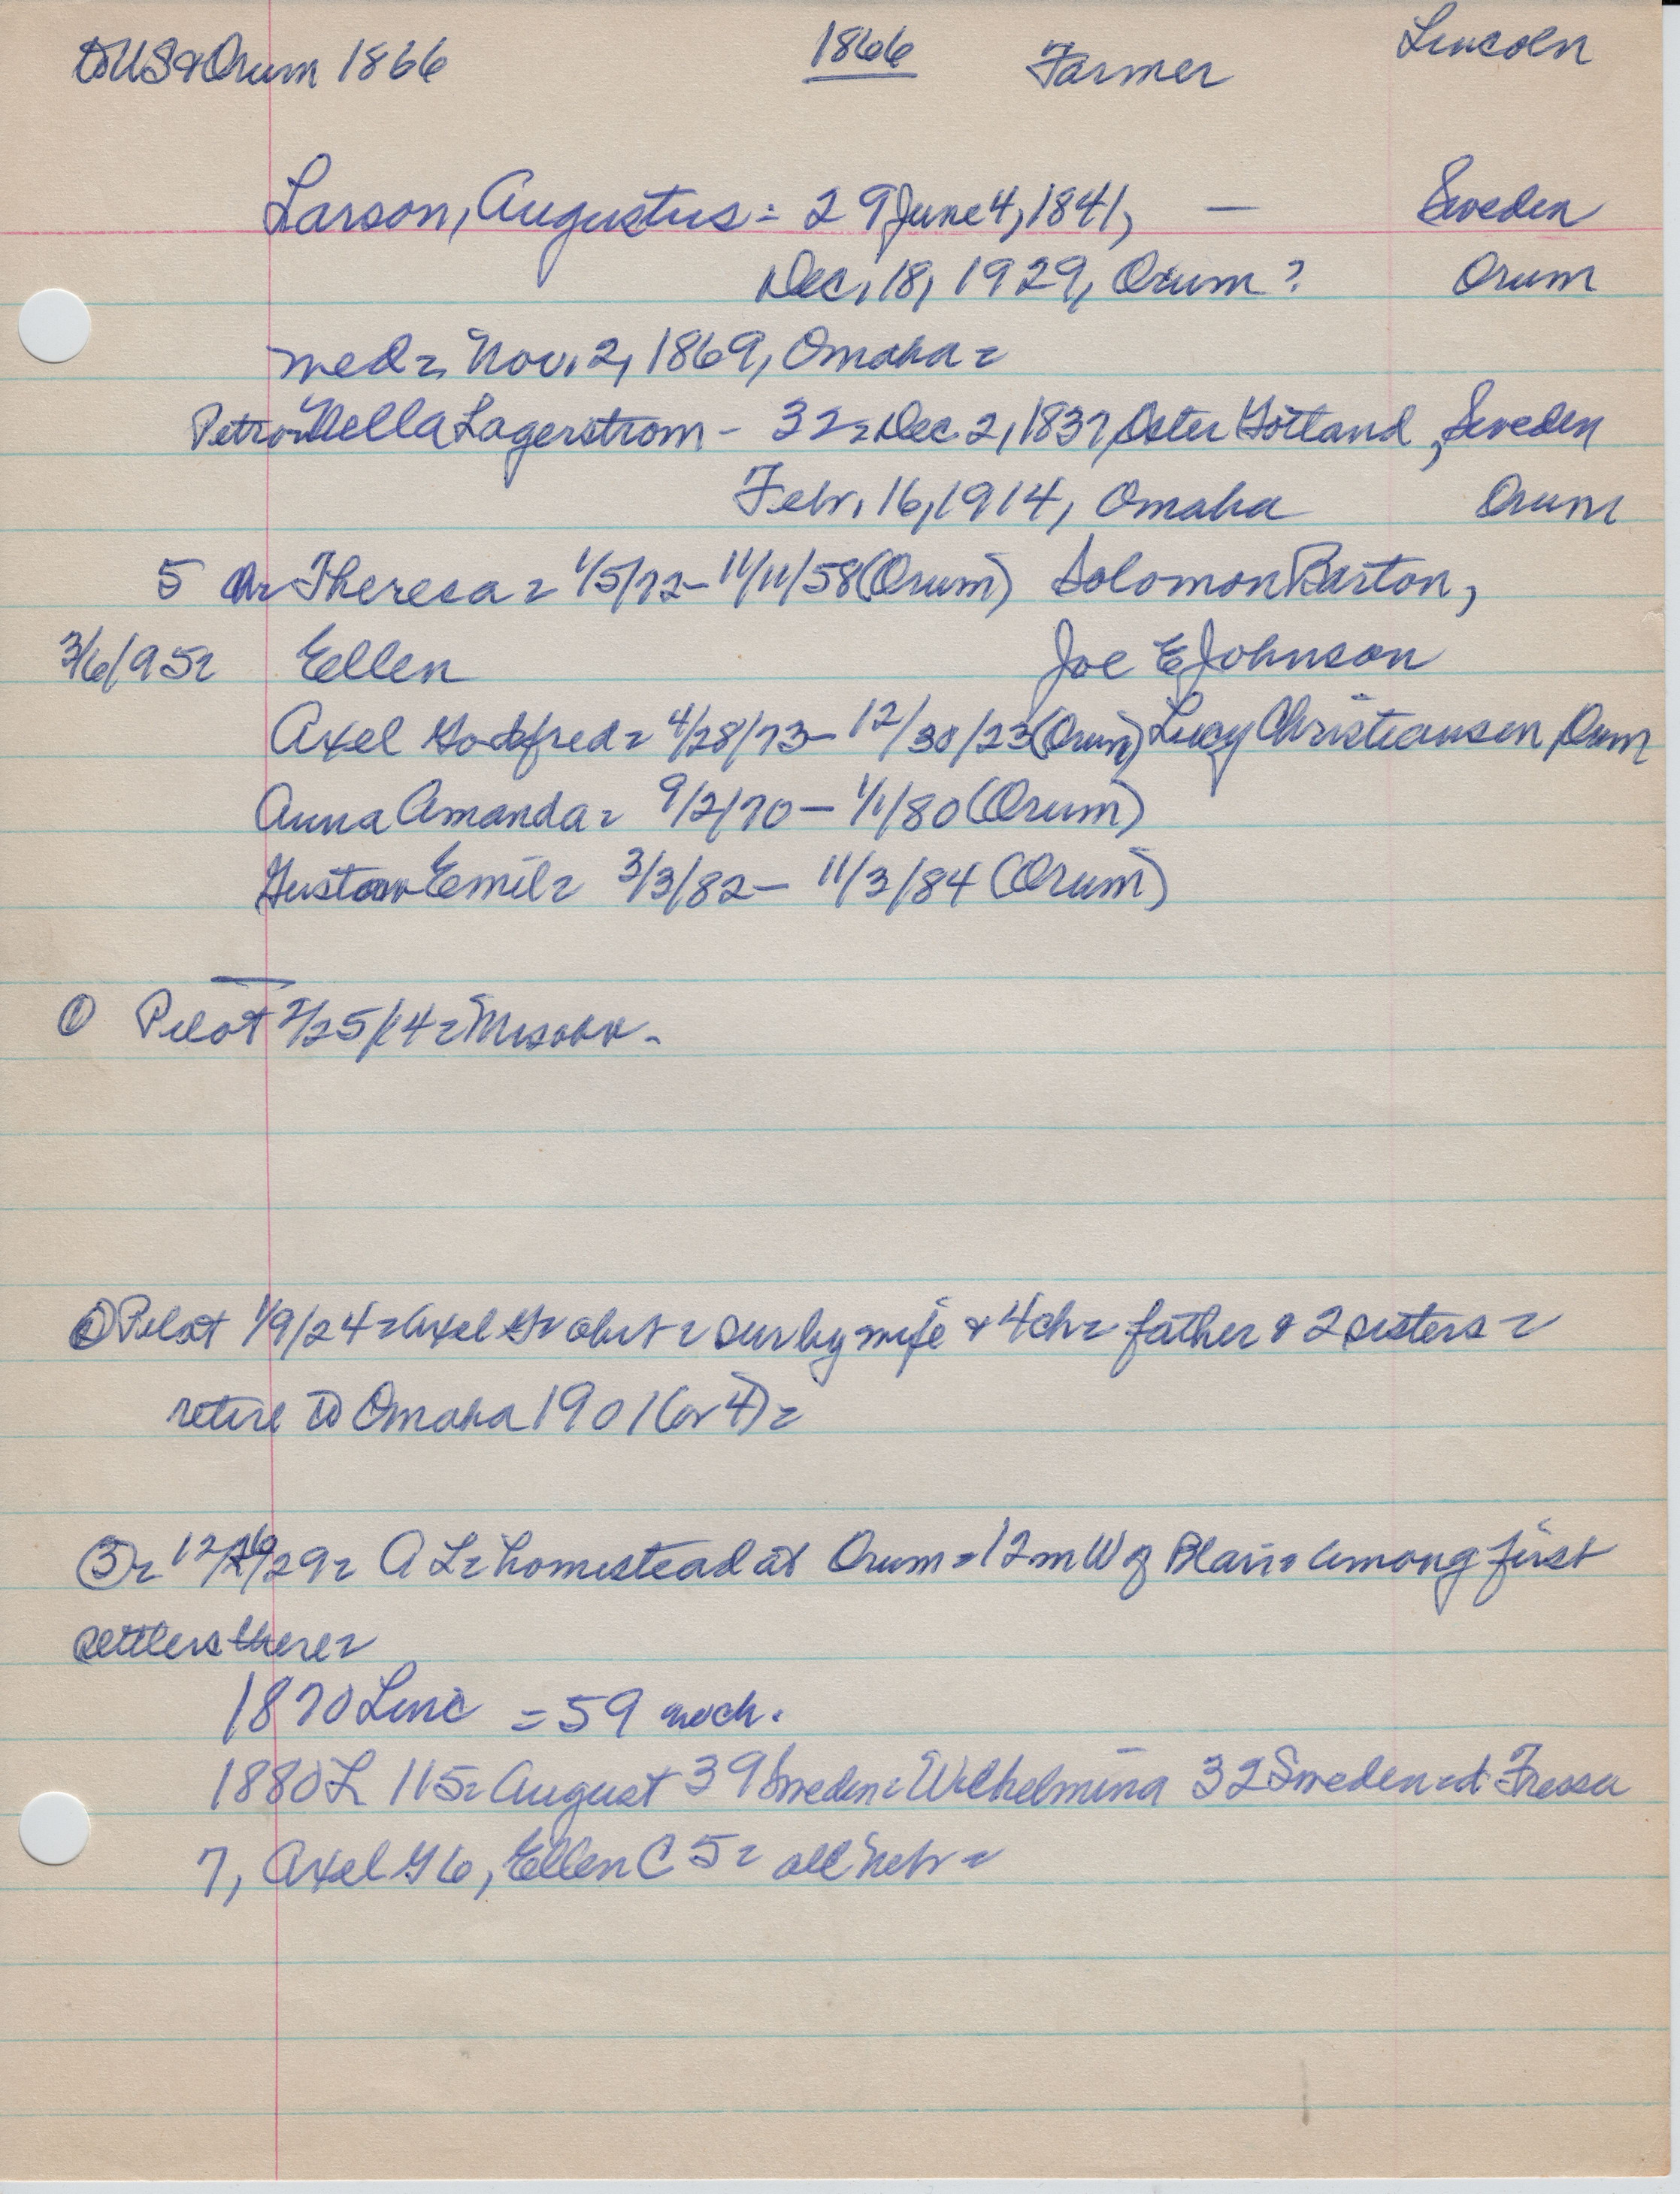 to US & Orum 1866 1866 Farmer Lincoln
Larson, Augustus = 29 June 4, 1841, — Sweden
Dec. 18, 1929, Orum? Orum
med = Nov. 2, 1869, Omaha =
Petronella Lagerstrom - 32 = Dec 2, 1837, Oster Gotland, Sweden
Febr. 16, 1914, Omaha Orum
5 ch = Theresa = 1/5/72 - 11/11/58 (Orum) Solomon Barton,
3/6/95 = Ellen Joe E Johnson
Axel Godfred = 4/28/73 - 12/30/23 (Orum) Lucy Christiansen, Orum
Anna Amanda = 9/2/70 - 1/1/80 (Orum)
Gustav Emil = 3/3/82 - 11/3/84 (Orum)
① Pilot 2/25/14 =
② Pilot 1/9/24 = Axel G = obit = sur by wife & 4 ch = father & 2 sisters =
retire to Omaha 1901 (or 4) =
③ = 12/26/29 = A L = homestead at Orum = 12 m W of Blair = among first
settlers there =
1870 Linc = 59 no ch.
1880 L 115 = August 39 Sweden = Wilhelmina 32 Sweden = d Tressa
7, Axel G 6, Ellen C 5 = all Nebr =